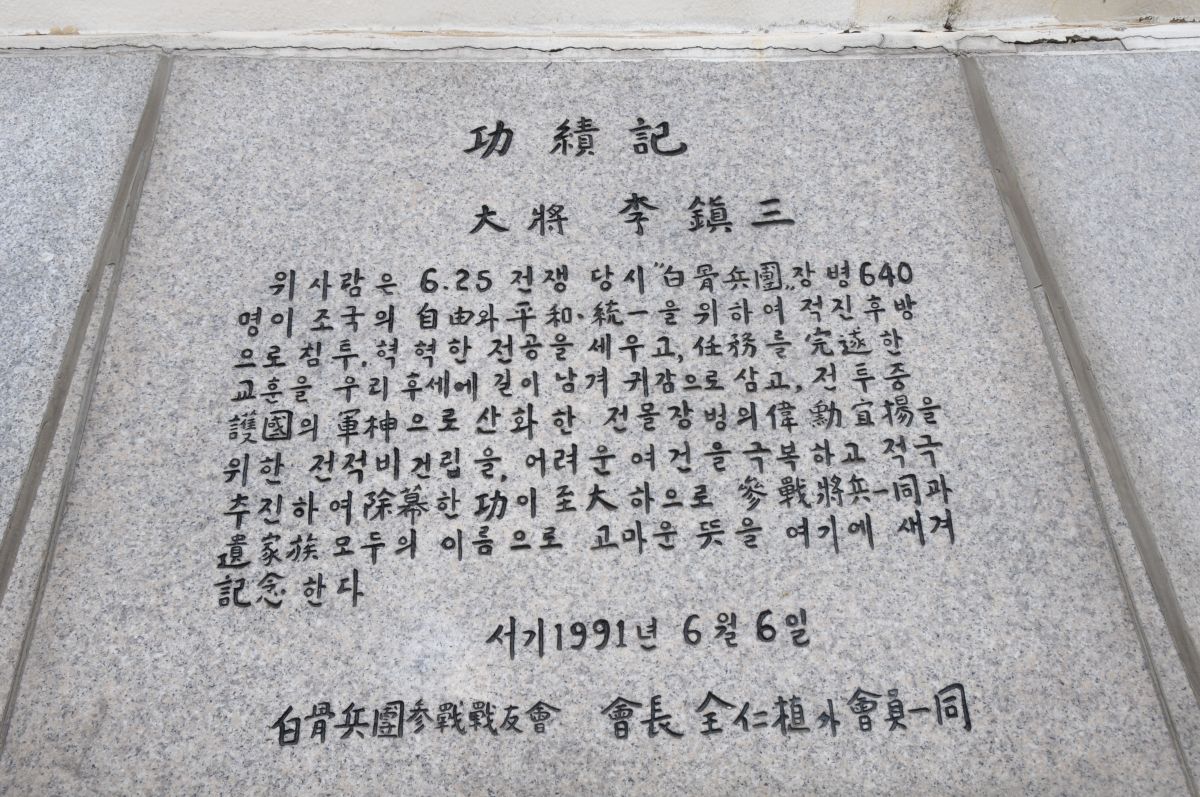 功績記
大將 李鎭三
위 사람은 6.25 전쟁 당시 "白骨兵團" 장병 640
명이 조국의 自由와 平和·統一을 위하여 적진후방
으로 침투, 혁혁한 전공을 세우고, 任務를 完遂한
교훈을 우리 후세에 길이 남겨 귀감으로 삼고, 전투중
護國의 軍神으로 산화한 전몰장병의 偉勳宣揚을
위한 전적비건립을, 어려운 여건을 극복하고 적극
추진하여 除幕한 功이 至大하으로 參戰將兵一同과
遺家族 모두의 이름으로 고마운 뜻을 여기에 새겨
記念 한다
서기1991년 6월 6일
白骨兵團參戰戰友會 會長 全仁植外 會員一同